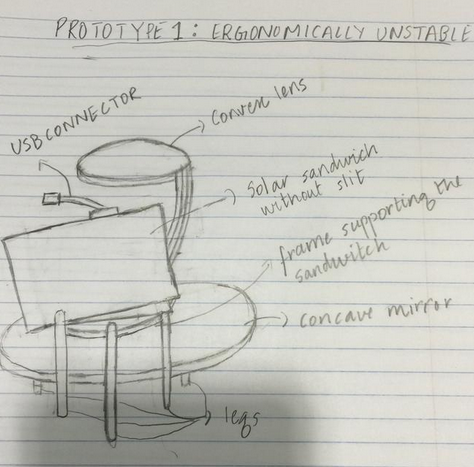 PROTOTYPE 1: ERGONOMICALLY UNSTABLE
USB CONNECTOR
Convex lens
Solar sandwich
without slit
frame supporting the
sandwitch
concave mirror
legs